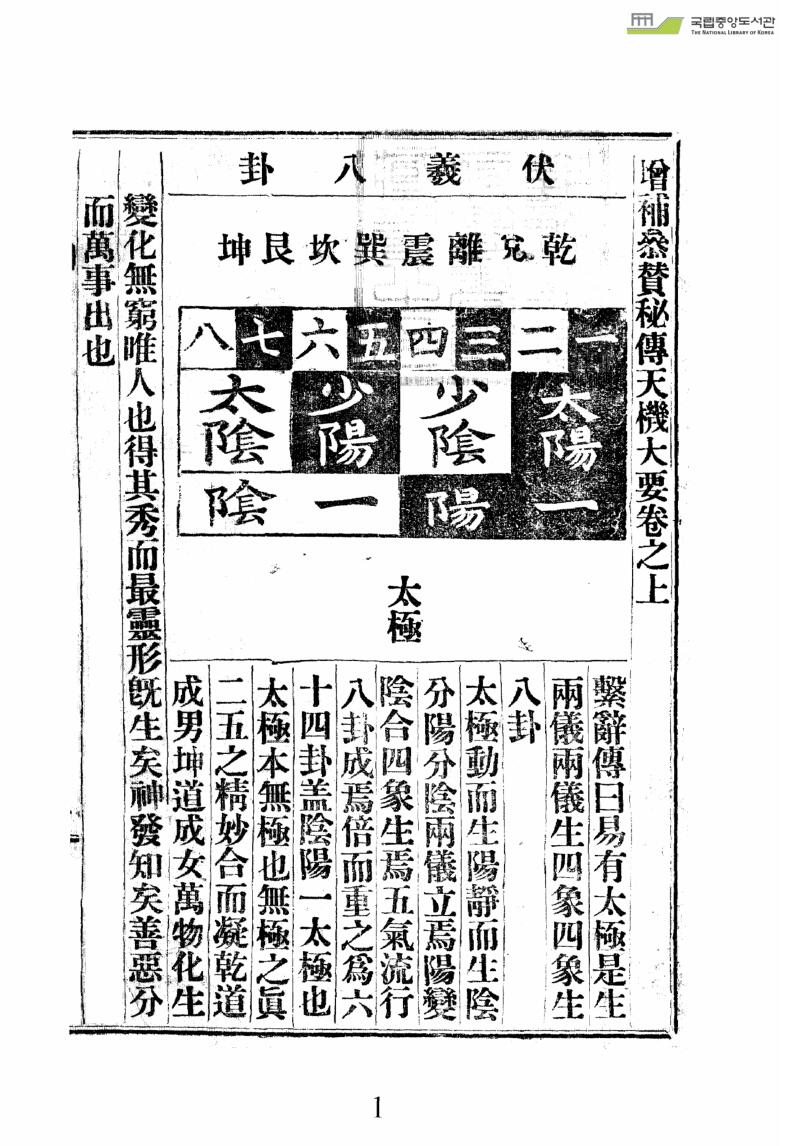 국립중앙도서관
THE NATIONAL LIBRARY OF KOREA
增補叅贊秘傳天機大要卷之上
伏羲八卦
乾兌離震巽坎艮坤
一二三四五六七八
太陽少陰少陽太陰
一陽一陰
太極
繫辭傳曰易有太極是生
兩儀兩儀生四象四象生
八卦
太極動而生陽靜而生陰
分陽分陰兩儀立焉陽變
陰合四象生焉五氣流行
八卦成焉倍而重之爲六
十四卦盖陰陽一太極也
太極本無極也無極之眞
二五之精妙合而凝乾道
成男坤道成女萬物化生
變化無窮唯人也得其秀而最靈形旣生矣神發知矣善惡分
而萬事出也
1